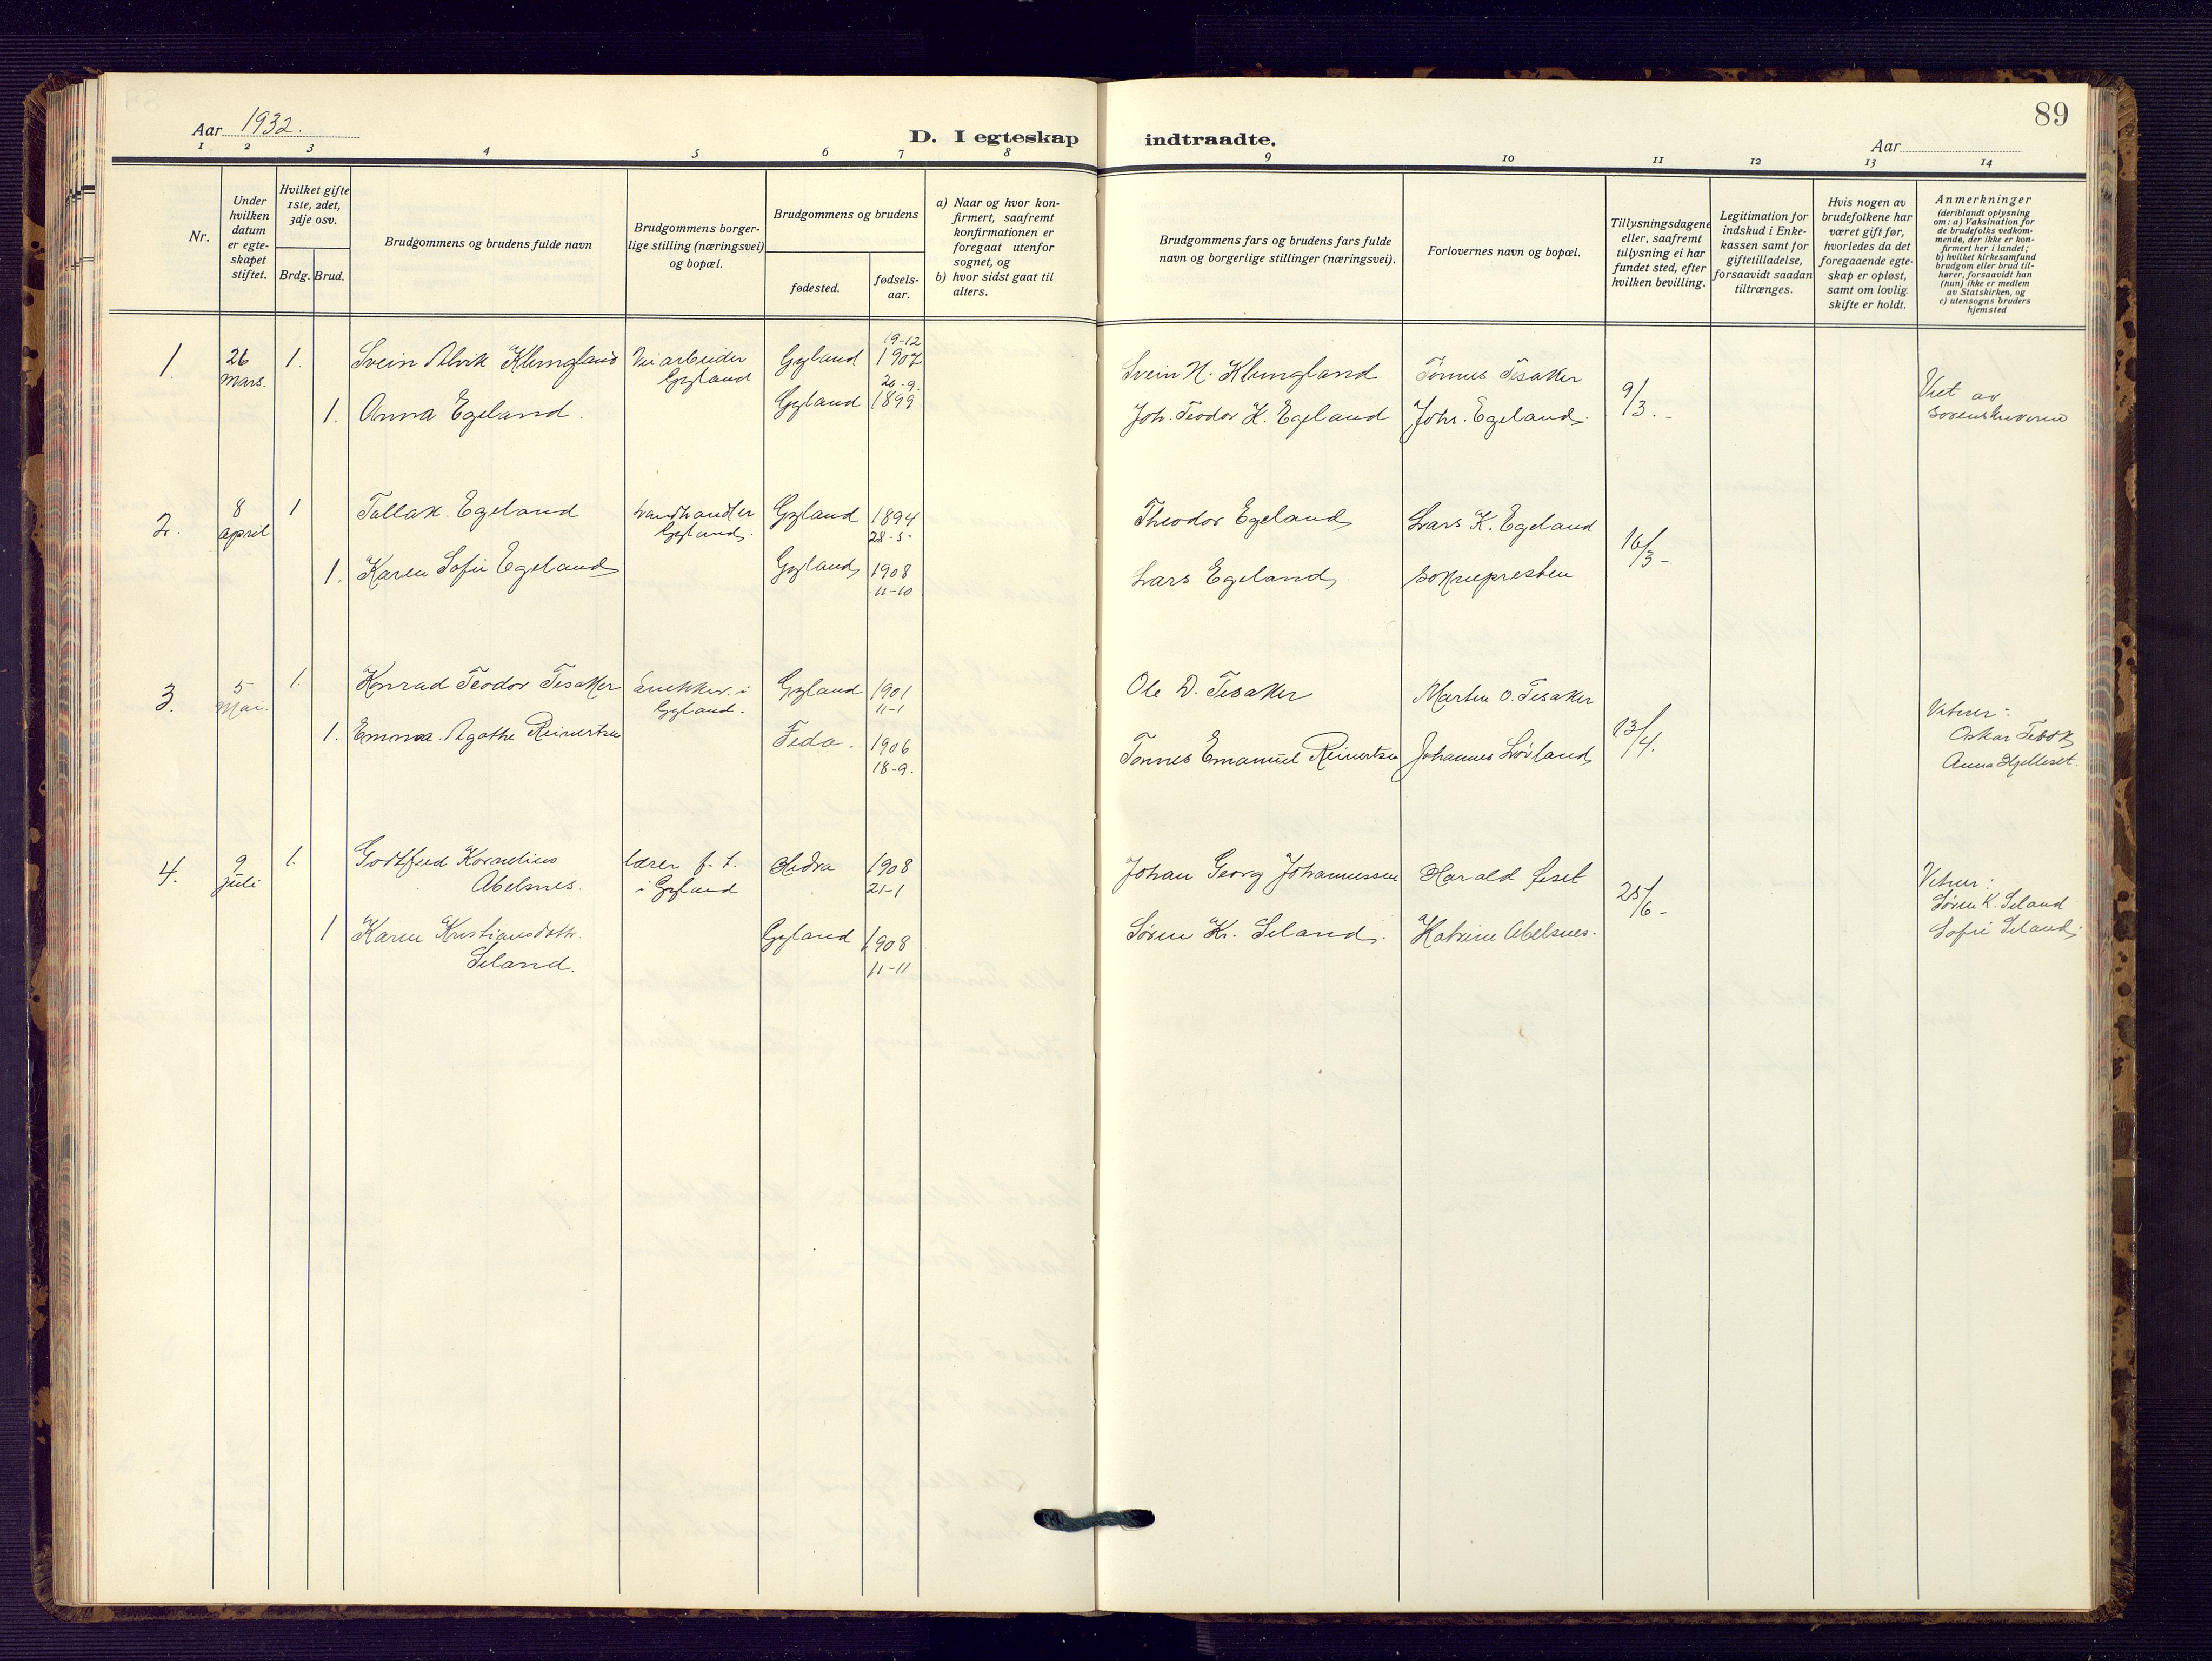 89
Aar 1932.
D. I egteskap indtraadte.
Aar
1 2 3 4 5 6 7 8 9 10 11 12 13 14
Nr.
Under
hvilken
datum
er egte-
skapet
stiftet.
Hvilket gifte
1ste, 2det,
3dje osv.
Brdg. Brud.
Brudgommens og brudens fulde navn
Brudgommens borger-
lige stilling (næringsvei)
og bopæl.
Brudgommens og brudens
fødested.
fødsels-
aar.
a) Naar og hvor kon-
firmert, saafremt
konfirmationen er
foregaat utenfor
sognet, og
b) hvor sidst gaat til
alters.
Brudgommens fars og brudens fars fulde
navn og borgerlige stillinger (næringsvei).
Forlovernes navn og bopæl.
Tillysningsdagene
eller, saafremt
tillysning ei har
fundet sted, efter
hvilken bevilling.
Legitimation for
indskud i Enke-
kassen samt for
giftetilladelse,
forsaavidt saadan
tiltrænges.
Hvis nogen av
brudefolkene har
været gift før,
hvorledes da det
foregaaende egte-
skap er opløst,
samt om lovlig
skifte er holdt.
Anmerkninger
(deriblandt oplysning
om: a) Vaksination for
de brudefolks vedkom-
mende, der ikke er kon-
firmert her i landet;
b) hvilket kirkesamfund
brudgom eller brud til-
hører, forsaavidt han
(hun) ikke er medlem
av Statskirken, og
c) utensogns bruders
hjemsted
1.
26
Mars.
1.
Svein Alvik Klungland
Veiarbeider
Gyland
Gyland
19-12
1907
Svein N. Klungland
Tønnes Tesaker
9/3.-
Viet av
sorenskriveren
1.
Anna Egeland.
Gyland
26-9.
1899
Joh. Teodor K. Egeland
Johs. Egeland.
2.
8
april
1
Tallak Egeland
Landhandler
Gyland.
Gyland
1894
28-5-
Theodor Egeland
Lars K. Egeland
16/3-
1.
Karen Sofie Egeland
Gyland
1908
11-10
Lars Egeland
Soknepresten
3.
5
Mai.
1.
Konrad Teodor Tesaker
Snekker i
Gyland.
Gyland
1901
11-1
Ole D. Tesaker
Martin O. Tesaker
13/4.
Vitner:
Oskar
Anna Hjelleset.
1.
Emma Agathe Reinertsen
Feda.
1906
18-9.
Tønnes Emanuel Reinertsen
Johannes Lørland
4.
9
juli
1.
Gottfred Kornelius
Abelsnes.
lærer f. t.
i Gyland
Hidra
1908
21-1
Johan Georg Johannessen
Harald
25/6-
Vitner:
Søren K. Seland
Sofie Seland.
1
Karen Kristiansdttr.
Seland.
Gyland
1908
11-11
Søren Kr. Seland.
Katrine Abelsnes.